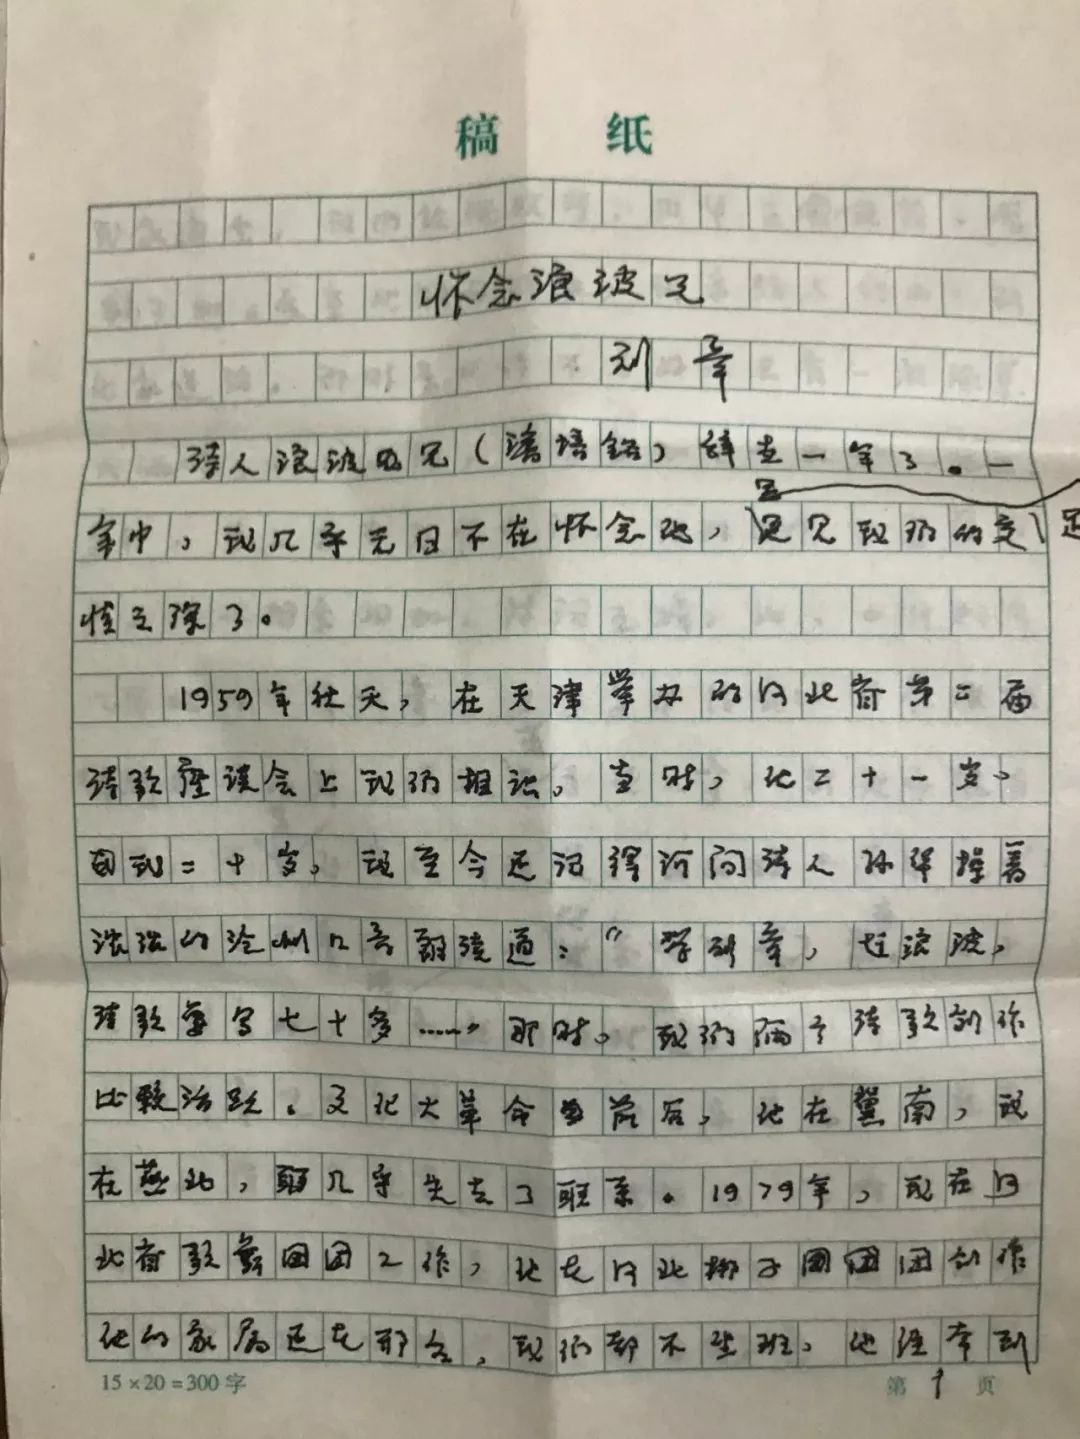 稿 纸
怀念浪波兄
刘 章
诗人浪波兄（潘培铭）辞世一年了。一
年中，我几乎无日不在怀念他，足见我们的交
情之深了。
1959年秋天，在天津举办的河北省第二届
诗歌座谈会上我们相识。当时，他二十一岁、
我二十岁。我至今还记得河间诗人孙 操着
浓浓的沧州口音 道：“学刘章，赶浪波，
诗歌要写七十多……”那时。我们俩个诗歌创作
比较活跃。文化大革命前后，他在冀南，我
在燕北，几乎失去了联系。1979年，我在河
北省歌舞团工作，他在河北梆子团创作
他的家属还在邢台，我们都不坐班，他经常到
15×20=300字
第 1 页